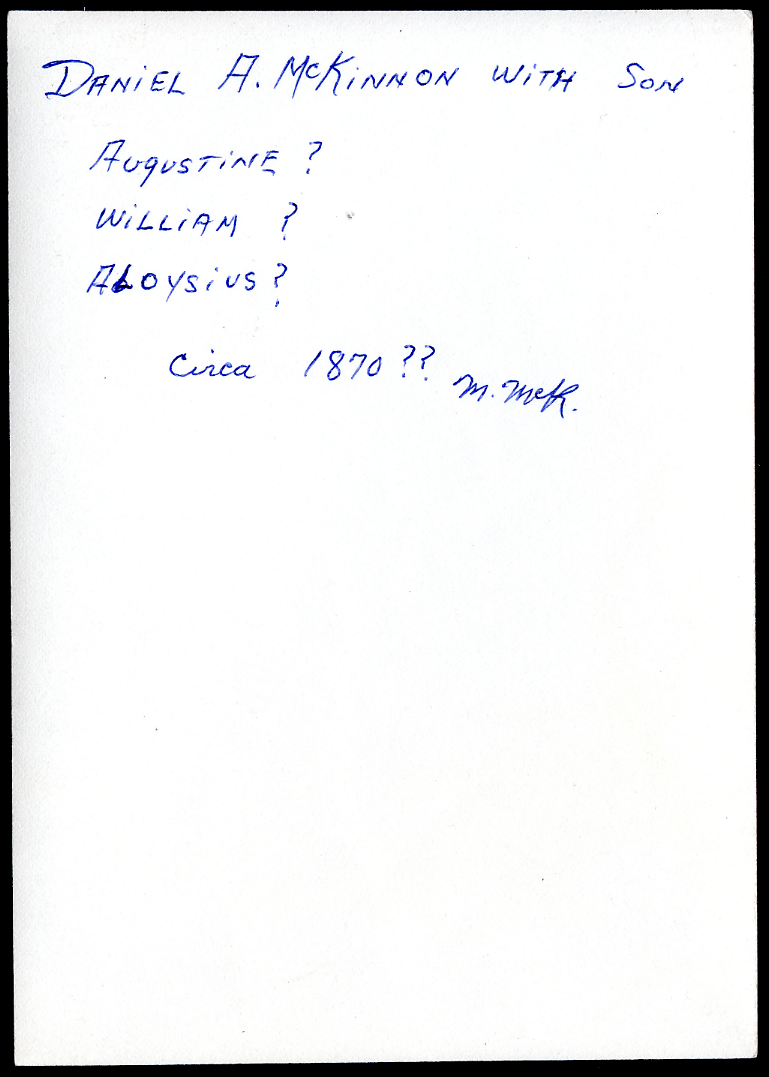 Daniel A. McKinnon with Son
Augustine ?
William ?
Aloysius ?
Circa 1870 ??
M. McK.